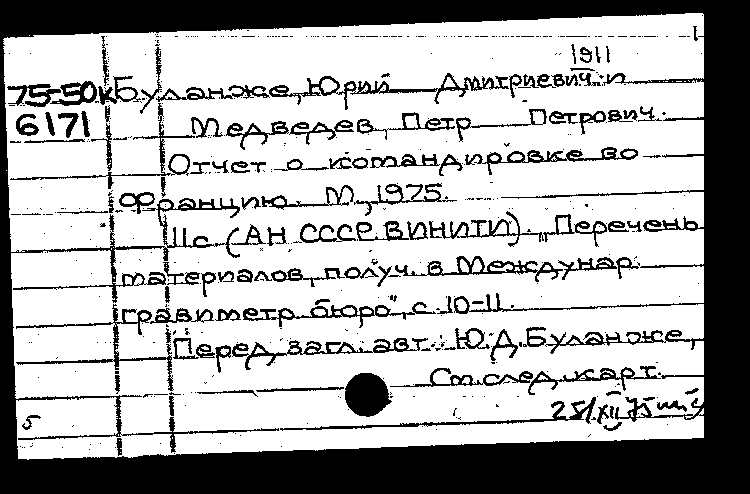 1
1911
75-50к Буланже, Юрий Дмитриевич и
6171 Медведев, Петр Петрович.
Отчет о командировке во
Францию. М., 1975.
11с (АН СССР. ВИНИТИ). „Перечень
материалов, получ. в Междунар.
гравиметр. бюро", с. 10-11.
Перед загл. авт.: Ю.Д. Буланже,
См. след. карт.
5
25/XII 75